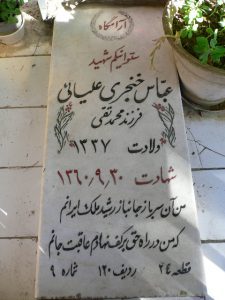 آرامگاه
ستوانیکم شهید
عباس خنجری علیسائی
فرزند محمدتقی
ولادت ۱۳۳۷
شهادت ۱۳۶۰٫۹٫۳۰
من آن سرباز جانباز رشید ملک ایرانم
که من در راه حق بر کف نهادم عاقبت جانم
قطعه ۲۴ ردیف ۱۲۰ شماره ۹